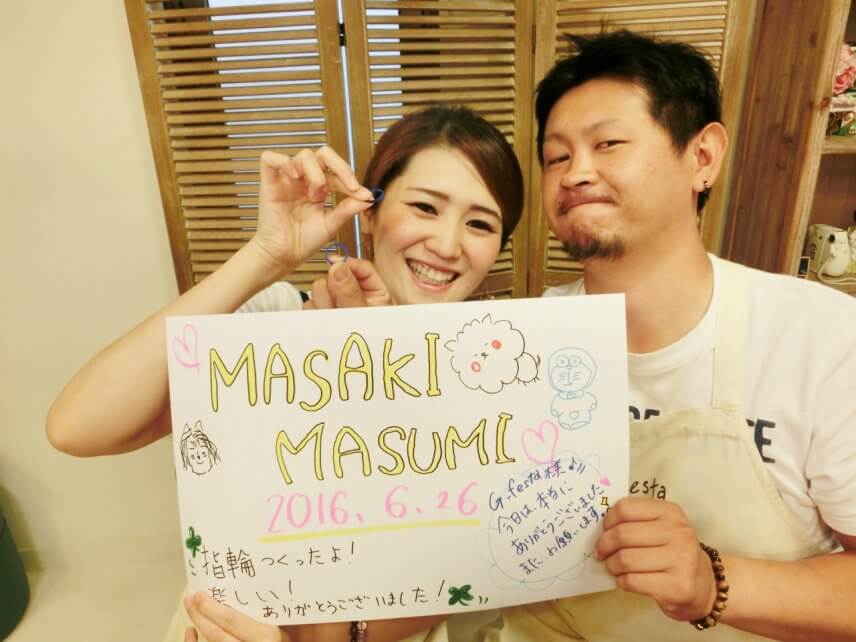 MASAKI
MASUMI
2016. 6. 26
G.festa様よ!!
今日は、本当に
ありがとうございました
また お願いします。
指輪つくったよ!
楽しい!
ありがとうございました!
esta